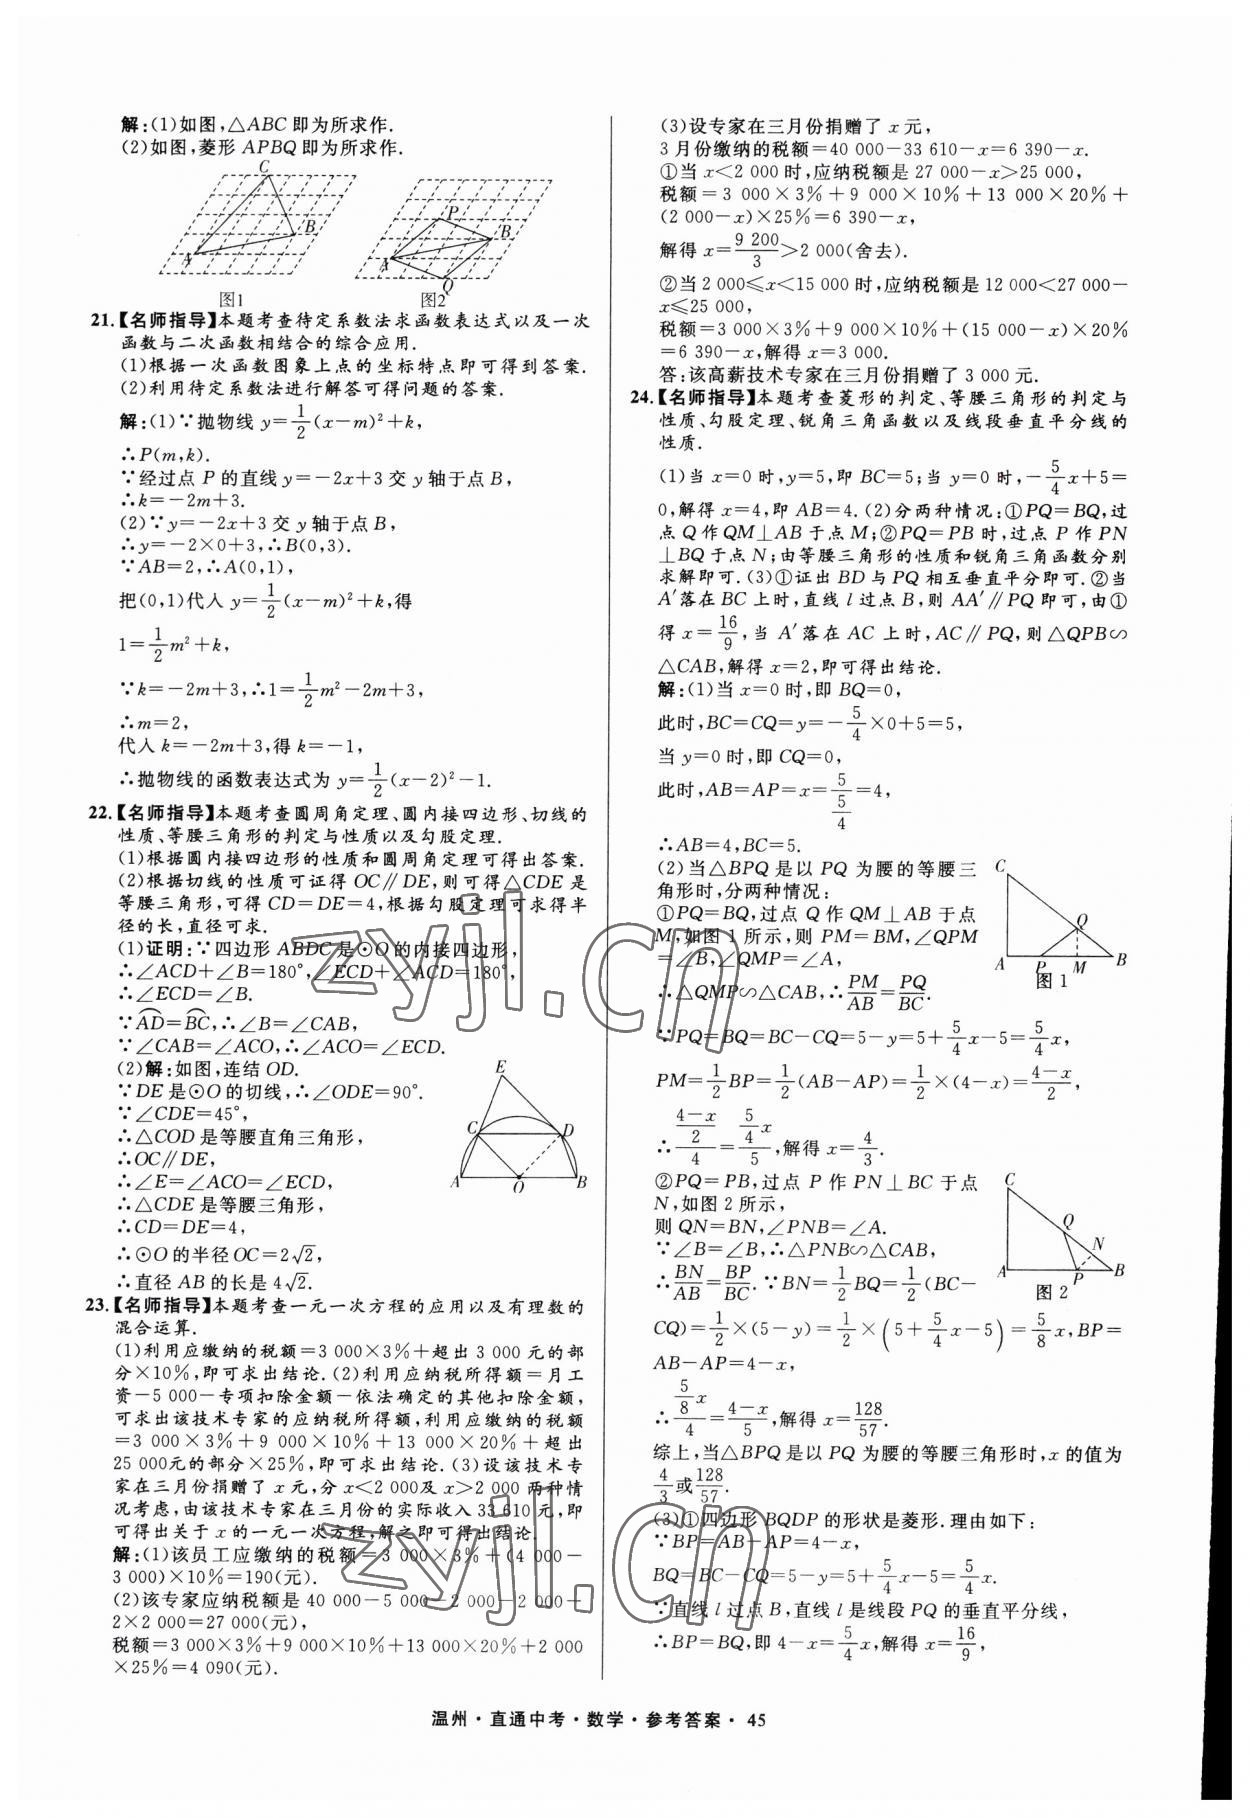 解:(1)如图,△ABC即为所求作.
(2)如图,菱形APBQ即为所求作.
C
B
A
图1
P
B
A
Q
图2
21.【名师指导】本题考查待定系数法求函数表达式以及一次
函数与二次函数相结合的综合应用.
(1)根据一次函数图象上点的坐标特点即可得到答案.
(2)利用待定系数法进行解答可得问题的答案.
解:(1)∵抛物线y=1/2(x-m)²+k,
∴P(m,k).
∵经过点P的直线y=-2x+3交y轴于点B,
∴k=-2m+3.
(2)∵y=-2x+3交y轴于点B,
∴y=-2×0+3,∴B(0,3).
∵AB=2,∴A(0,1),
把(0,1)代入y=1/2(x-m)²+k,得
1=1/2m²+k,
∵k=-2m+3,∴1=1/2m²-2m+3,
∴m=2,
代入k=-2m+3,得k=-1,
∴抛物线的函数表达式为y=1/2(x-2)²-1.
22.【名师指导】本题考查圆周角定理、圆内接四边形、切线的
性质、等腰三角形的判定与性质以及勾股定理.
(1)根据圆内接四边形的性质和圆周角定理可得出答案.
(2)根据切线的性质可证得OC∥DE,则可得△CDE是
等腰三角形,可得CD=DE=4,根据勾股定理可求得半
径的长,直径可求.
(1)证明:∵四边形ABDC是⊙O的内接四边形,
∴∠ACD+∠B=180°,∠ECD+∠ACD=180°,
∴∠ECD=∠B.
∵AD=BC,∴∠B=∠CAB,
∵∠CAB=∠ACO,∴∠ACO=∠ECD.
(2)解:如图,连结OD.
∵DE是⊙O的切线,∴∠ODE=90°.
∵∠CDE=45°,
∴△COD是等腰直角三角形,
∴OC∥DE,
∴∠E=∠ACO=∠ECD,
∴△CDE是等腰三角形,
∴CD=DE=4,
∴⊙O的半径OC=2√2,
∴直径AB的长是4√2.
E
C
D
A
O
B
23.【名师指导】本题考查一元一次方程的应用以及有理数的
混合运算.
(1)利用应缴纳的税额=3 000×3%+超出3 000元的部
分×10%,即可求出结论.(2)利用应纳税所得额=月工
资-5 000-专项扣除金额-依法确定的其他扣除金额,
可求出该技术专家的应纳税所得额,利用应缴纳的税额
=3 000×3%+9 000×10%+13 000×20%+超出
25 000元的部分×25%,即可求出结论.(3)设该技术专
家在三月份捐赠了x元,分x<2 000及x>2 000两种情
况考虑,由该技术专家在三月份的实际收入33 610元,即
可得出关于x的一元一次方程,解之即可得出结论.
解:(1)该员工应缴纳的税额=3 000×3%+(4 000-
3 000)×10%=190(元).
(2)该专家应纳税额是40 000-5 000-2 000-2 000-
2×2 000=27 000(元),
税额=3 000×3%+9 000×10%+13 000×20%+2 000
×25%=4 090(元).
(3)设专家在三月份捐赠了x元,
3月份缴纳的税额=40 000-33 610-x=6 390-x.
①当x<2 000时,应纳税额是27 000-x>25 000,
税额=3 000×3%+9 000×10%+13 000×20%+
(2 000-x)×25%=6 390-x,
解得x=9 200/3>2 000(舍去).
②当2 000≤x<15 000时,应纳税额是12 000<27 000-
x≤25 000,
税额=3 000×3%+9 000×10%+(15 000-x)×20%
=6 390-x,解得x=3 000.
答:该高薪技术专家在三月份捐赠了3 000元.
24.【名师指导】本题考查菱形的判定、等腰三角形的判定与
性质、勾股定理、锐角三角函数以及线段垂直平分线的
性质.
(1)当x=0时,y=5,即BC=5;当y=0时,-5/4x+5=
0,解得x=4,即AB=4.(2)分两种情况:①PQ=BQ,过
点Q作QM⊥AB于点M;②PQ=PB时,过点P作PN
⊥BQ于点N;由等腰三角形的性质和锐角三角函数分别
求解即可.(3)①证出BD与PQ相互垂直平分即可.②当
A′落在BC上时,直线l过点B,则AA′∥PQ即可,由①
得x=16/9,当A′落在AC上时,AC∥PQ,则△QPB∽
△CAB,解得x=2,即可得出结论.
解:(1)当x=0时,即BQ=0,
此时,BC=CQ=y=-5/4×0+5=5,
当y=0时,即CQ=0,
此时,AB=AP=x=5/(5/4)=4,
∴AB=4,BC=5.
(2)当△BPQ是以PQ为腰的等腰三
角形时,分两种情况:
①PQ=BQ,过点Q作QM⊥AB于点
M,如图1所示,则PM=BM,∠QPM
=∠B,∠QMP=∠A,
∴△QMP∽△CAB,∴PM/AB=PQ/BC.
C
Q
A
P
M
B
图1
∵PQ=BQ=BC-CQ=5-y=5+5/4x-5=5/4x,
PM=1/2BP=1/2(AB-AP)=1/2×(4-x)=(4-x)/2,
∴((4-x)/2)/4=(5/4x)/5,解得x=4/3.
②PQ=PB,过点P作PN⊥BC于点
N,如图2所示,
则QN=BN,∠PNB=∠A.
∵∠B=∠B,∴△PNB∽△CAB,
∴BN/AB=BP/BC.∵BN=1/2BQ=1/2(BC-
C
Q
N
A
P
B
图2
CQ)=1/2×(5-y)=1/2×(5+5/4x-5)=5/8x,BP=
AB-AP=4-x,
∴(5/8x)/4=(4-x)/5,解得x=128/57.
综上,当△BPQ是以PQ为腰的等腰三角形时,x的值为
4/3或128/57.
(3)①四边形BQDP的形状是菱形.理由如下:
∵BP=AB-AP=4-x,
BQ=BC-CQ=5-y=5+5/4x-5=5/4x,
∵直线l过点B,直线l是线段PQ的垂直平分线,
∴BP=BQ,即4-x=5/4x,解得x=16/9,
温州·直通中考·数学·参考答案·45
zyjl.cn
zyjl.cn